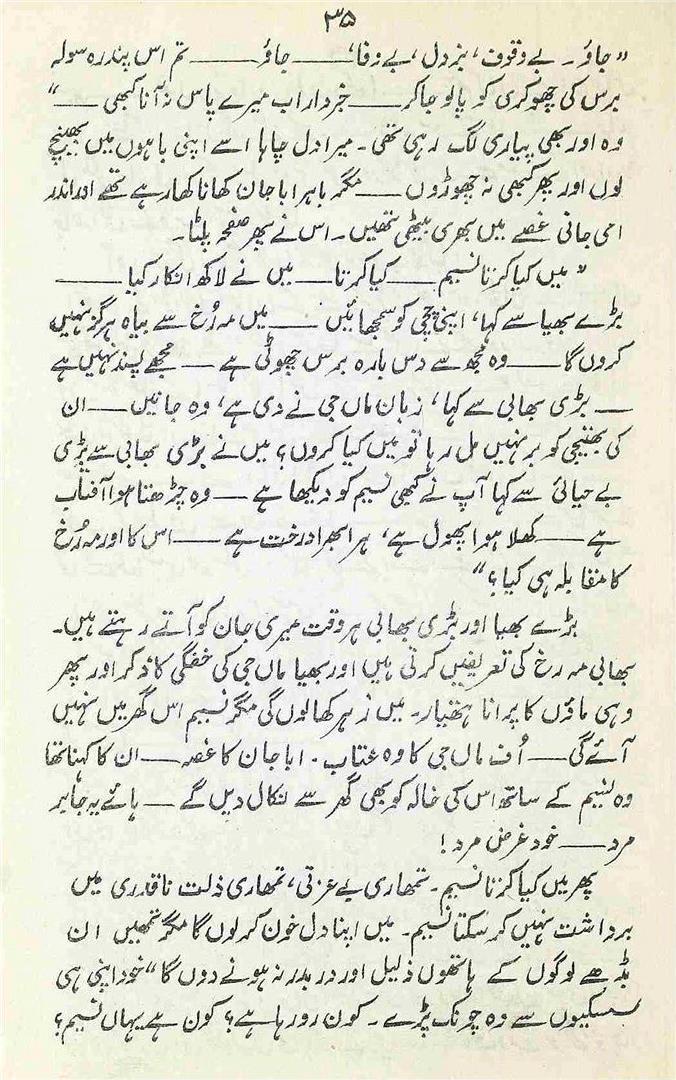 ۳۵
”جاؤ۔ بے وقوف، بزدل، بے وفا، ——— جاؤ ——— تم اس پندرہ سولہ
برس کی چھوکری کو پالو جاکر —— خبردار اب میرے پاس نہ آنا کبھی ——“
وہ اور بھی پیاری لگ رہی تھی۔ میرا دل چاہا اسے اپنی باہوں میں بھینچ
لوں اور پھر کبھی نہ چھوڑوں —— مگر باہر ابا جان کھانا کھا رہے تھے اور اندر
امی جانی غصے میں بھری بیٹھی تھیں۔ اس نے پھر صفحہ پلٹا۔
”میں کیا کرتا نسیم —— کیا کرتا —— میں نے لاکھ انکار کیا ———
بڑے بھیا سے کہا، اپنی چچی کو سمجھائیں —— میں مہ رُخ سے بیاہ ہرگز نہیں
کروں گا —— وہ مجھ سے دس بارہ برس چھوٹی ہے —— مجھے پسند نہیں ہے
—— بڑی بھابی سے کہا، زبان ماں جی نے دی ہے، وہ جانیں —— ان
کی بھتیجی کو بر نہیں مل رہا تو میں کیا کروں؟ میں نے بڑی بھابی سے بڑی
بے حیائی سے کہا آپ نے کبھی نسیم کو دیکھا ہے —— وہ چڑھتا ہوا آفتاب
ہے —— کھلا ہوا پھول ہے، ہرا بھرا درخت ہے —— اس کا اور مہ رُخ
کا مقابلہ ہی کیا؟“
بڑے بھیا اور بڑی بھابی ہر وقت میری جان کو آتے رہتے ہیں۔
بھابی مہ رخ کی تعریفیں کرتی ہیں اور بھیا ماں جی کی خفگی کا ذکر اور پھر
وہی ماؤں کا پرانا ہتھیار۔ میں زہر کھا لوں گی مگر نسیم اس گھر میں نہیں
آئے گی —— اُف ماں جی کا وہ عتاب۔ ابا جان کا غصہ —— ان کا کہنا تھا
وہ نسیم کے ساتھ اس کی خالہ کو بھی گھر سے نکال دیں گے —— ہائے یہ جابر
مرد —— خود غرض مرد!
پھر میں کیا کرتا نسیم۔ تمھاری بے عزتی، تمھاری ذلت ناقدری میں
برداشت نہیں کر سکتا نسیم۔ میں اپنا دل خون کر لوں گا مگر تمھیں ان
بڈھے لوگوں کے ہاتھوں ذلیل اور در بدر نہ ہونے دوں گا“ خود اپنی ہی
سسکیوں سے وہ چونک پڑے۔ کون رو رہا ہے؟ کون ہے یہاں نسیم؟